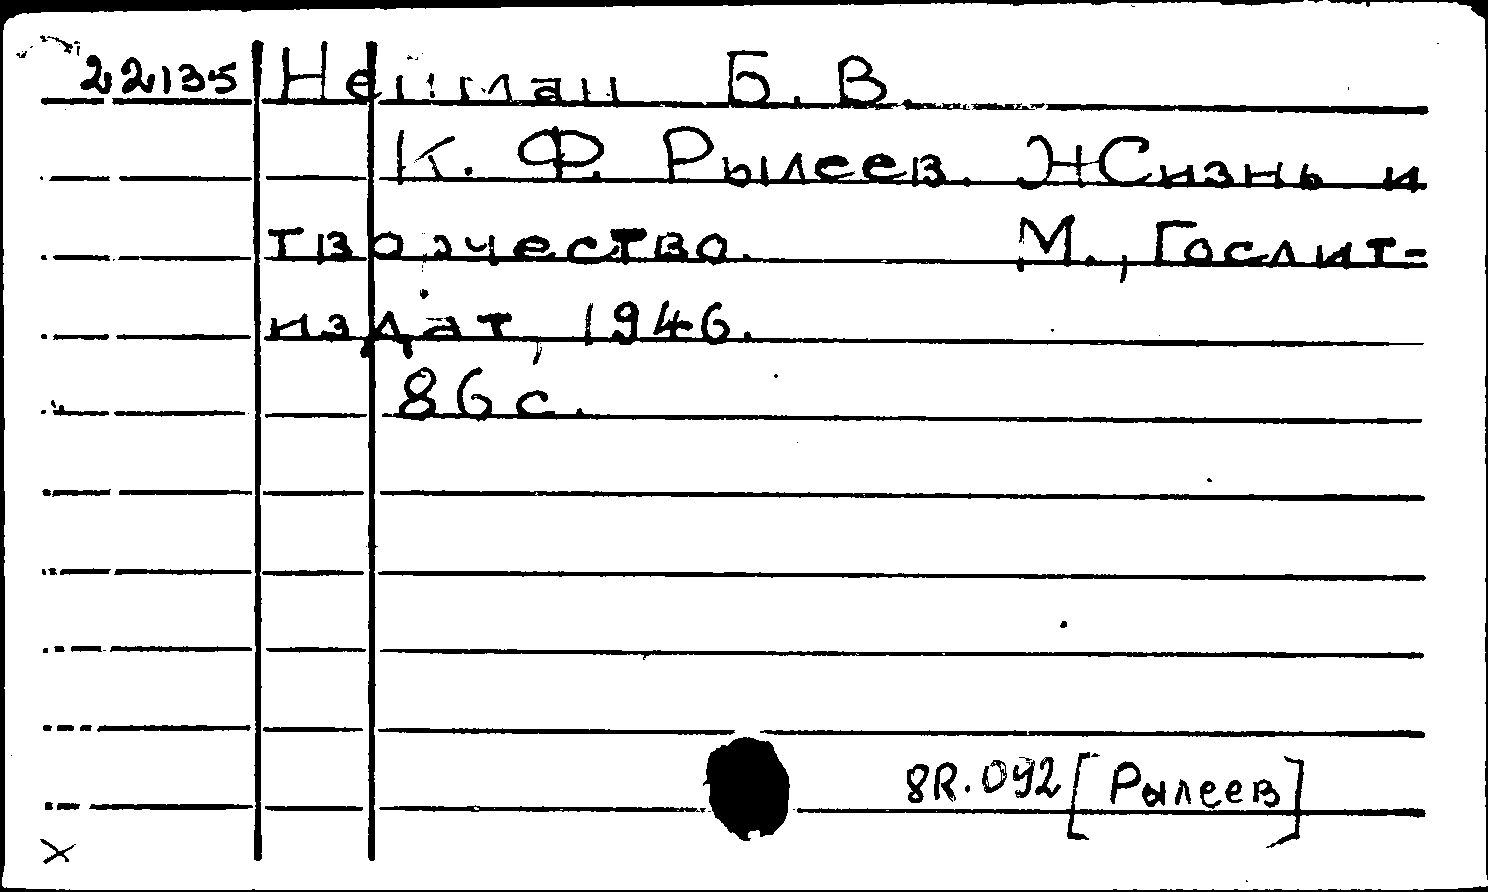 22135 Нейман Б. В.
К. Ф. Рылеев. Жизнь и
творчество. М., Гослит-
издат, 1946.
86 с.
8R.092 [Рылеев]
х